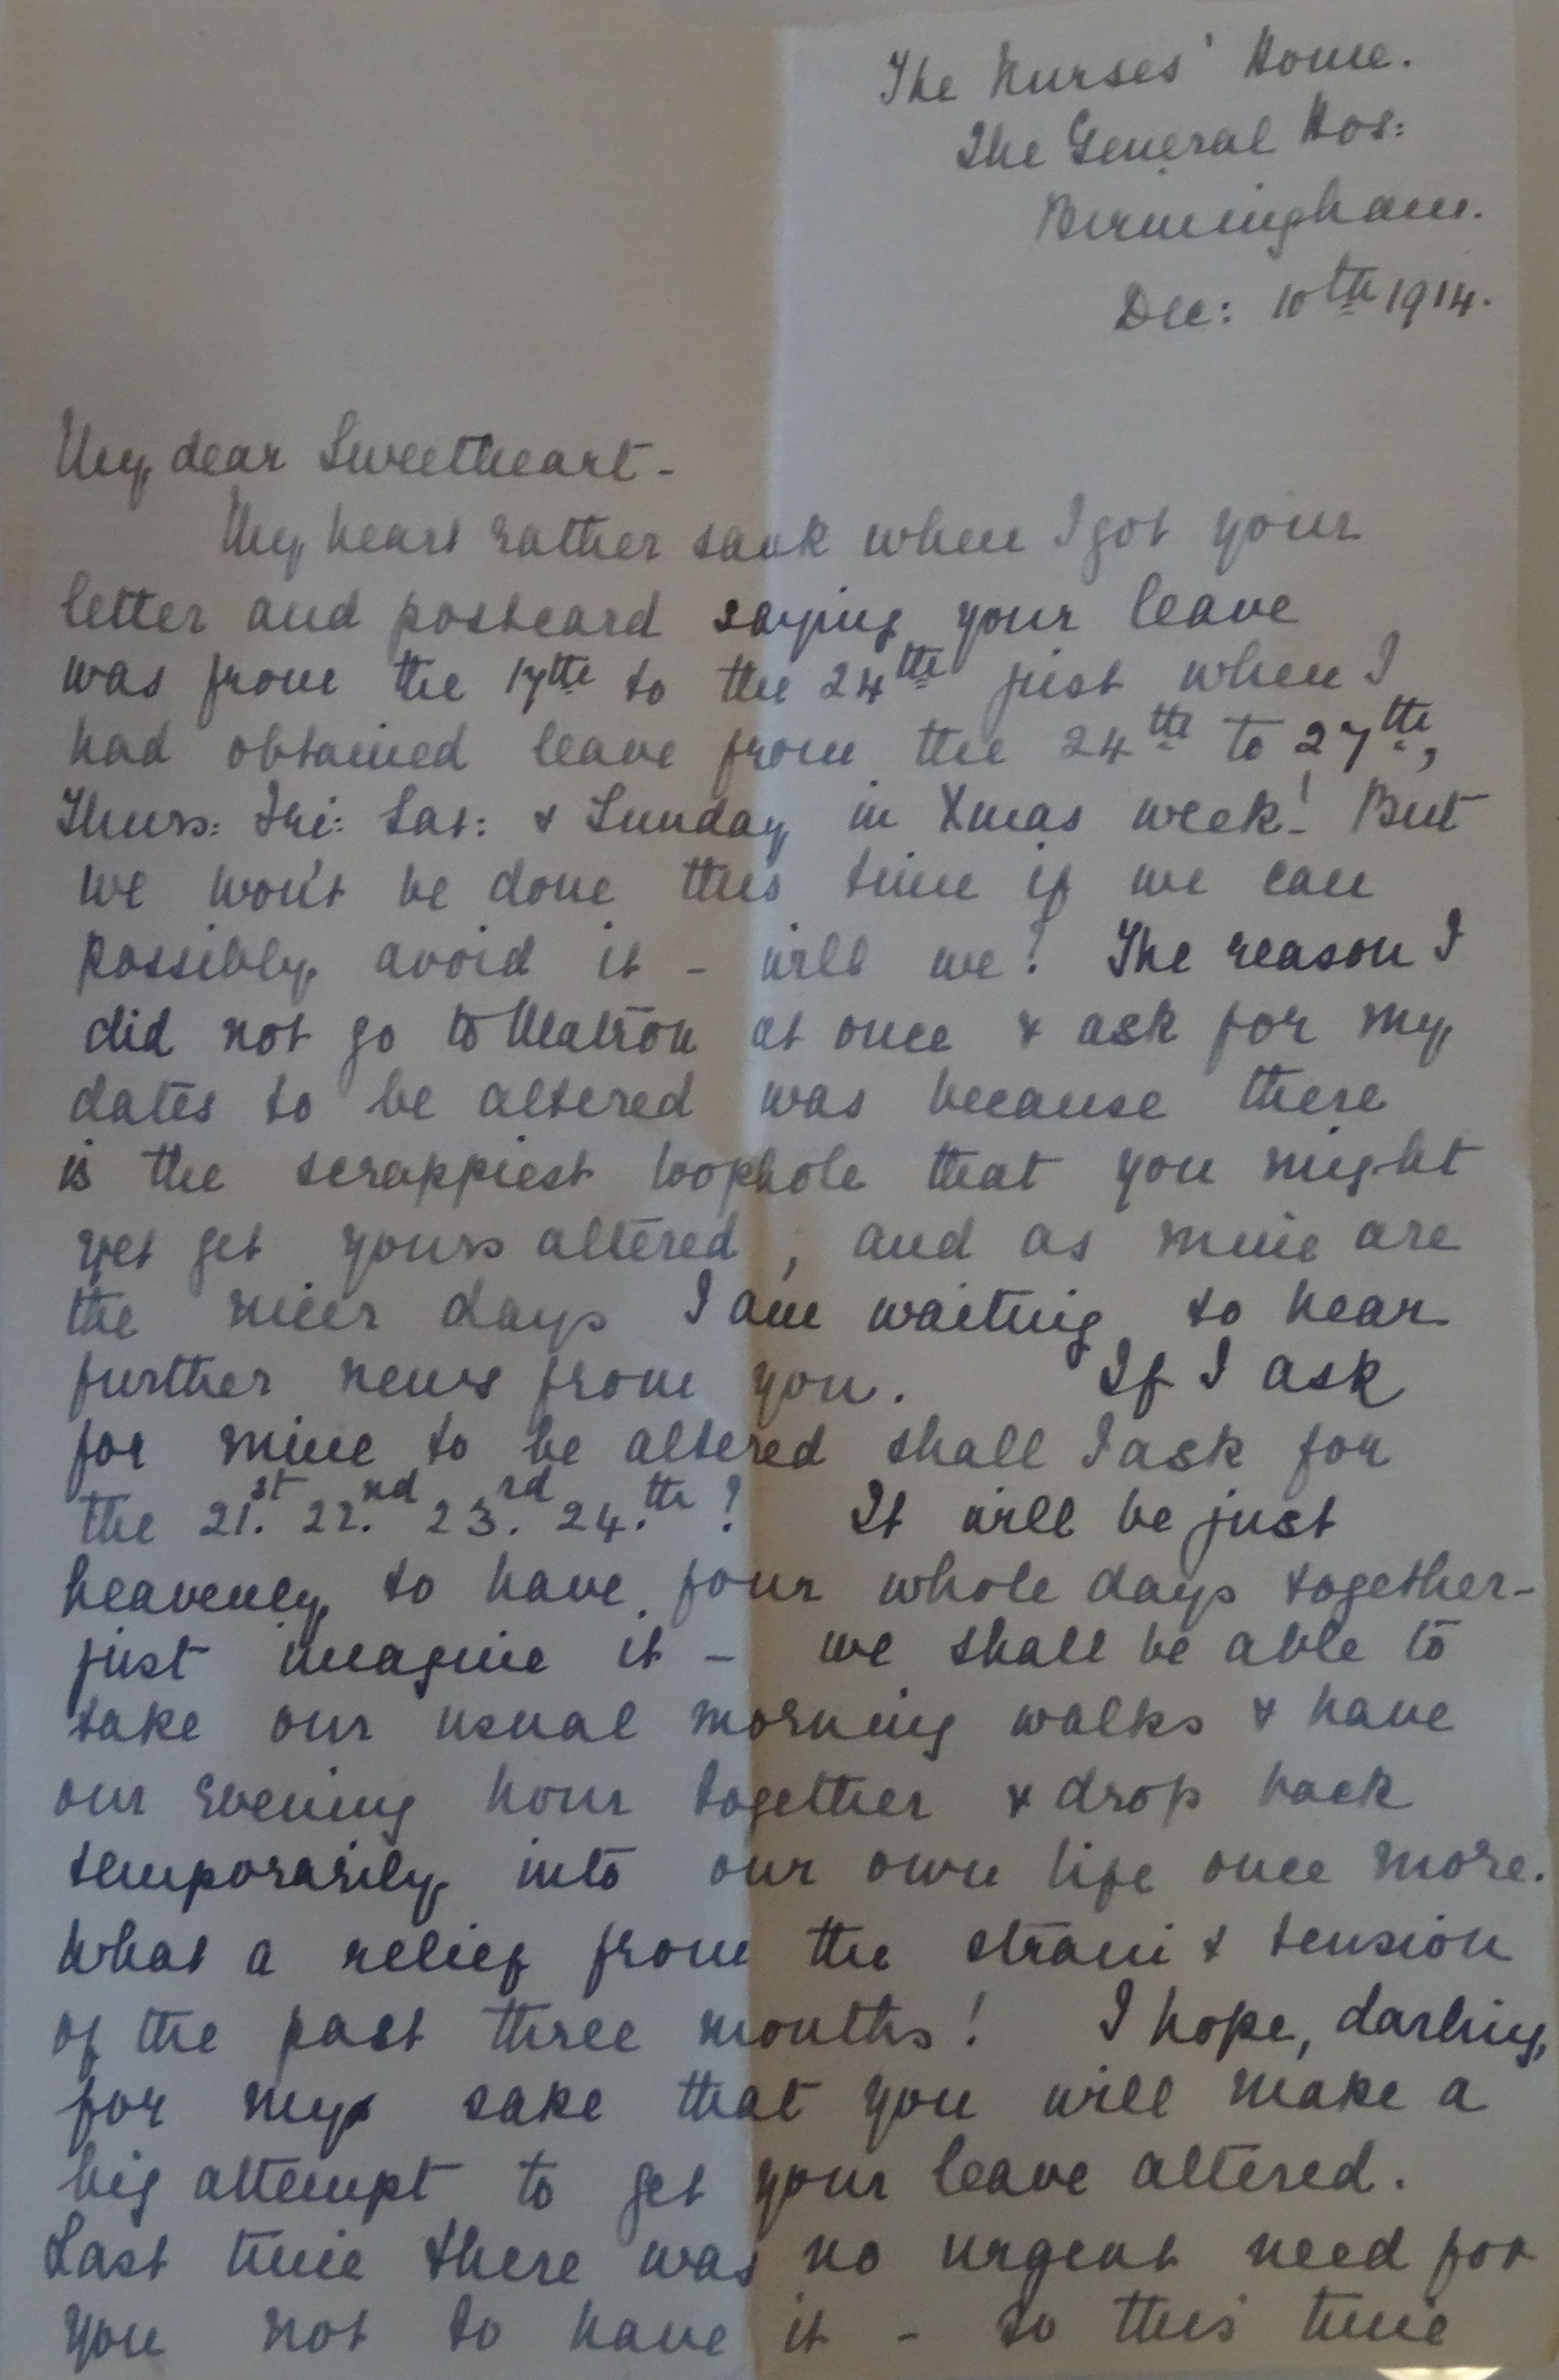 The Nurses' Home.
The General Hos:
Birmingham.
Dec: 10th 1914.
My dear Sweetheart -
My heart rather sank when I got your
letter and postcard saying your leave
was from the 17th to the 24th just when I
had obtained leave from the 24th to 27th,
Thurs: Fri: Sat: & Sunday in Xmas week! But
we won't be done this time if we can
possibly avoid it - will we? The reason I
did not go to Matron at once & ask for my
dates to be altered was because there
is the scrappiest loophole that you might
yet get yours altered, and as mine are
the nicer days I am waiting to hear
further news from you. If I ask
for mine to be altered shall I ask for
the 21.st 22.nd 23.rd 24.th? It will be just
heavenly to have four whole days together -
just imagine it - we shall be able to
take our usual morning walks & have
our evening hour together & drop back
temporarily into our own life once more.
What a relief from the strain & tension
of the past three months! I hope, darling,
for my sake that you will make a
big attempt to get your leave altered.
Last time there was no urgent need for
you not to have it - so this time